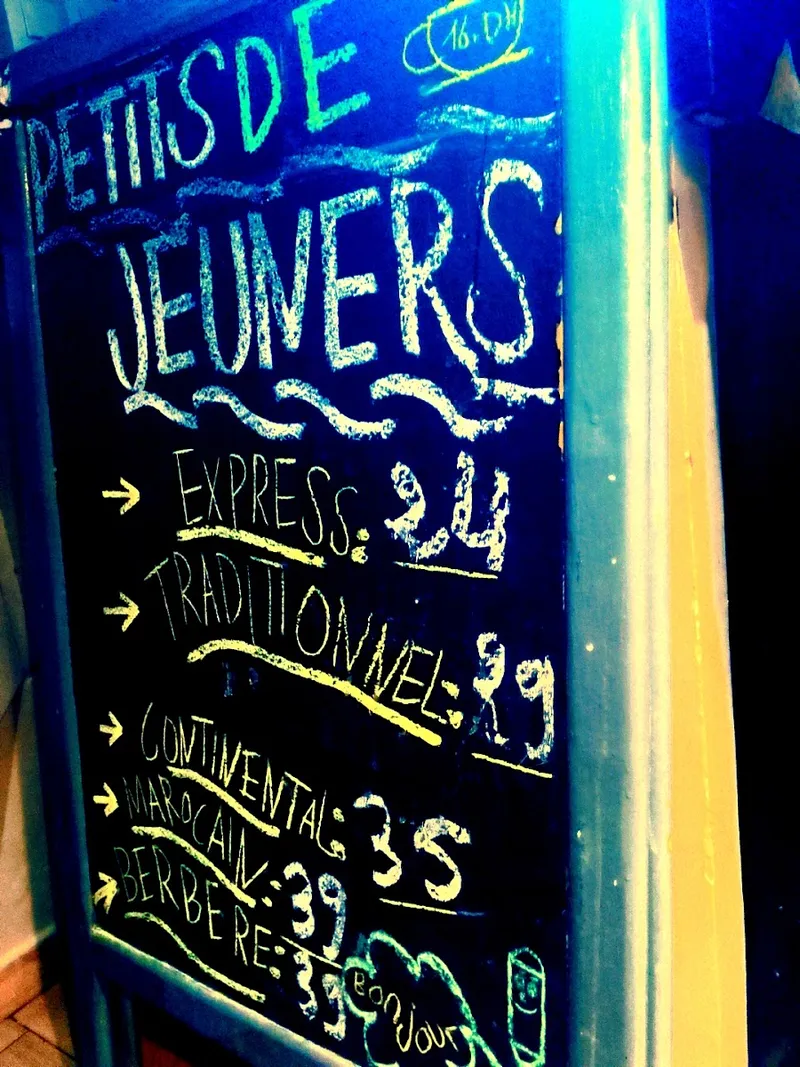 PETITS DE
16.DH
JEUNERS
EXPRESS: 24
TRADITIONNEL: 29
CONTINENTAL: 35
MAROCAIN: 39
BERBERE: 39
BONJOUR